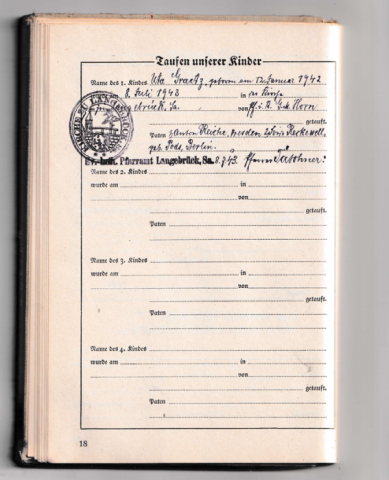 Taufen unserer Kinder
Name des 1. Kindes Uta Graetz, geboren am 12. Januar 1942
8. Juli 1943 in der Kirche
Langebrück Sa. von Horn
getauft.
Paten Anton Reiche, Dresden,
geb. Berlin.
Ev.-luth. Pfarramt Langebrück, Sa. 8.7.43. Pfarrer
Name des 2. Kindes
wurde am in
von
getauft.
Paten
Name des 3. Kindes
wurde am in
von
getauft.
Paten
Name des 4. Kindes
wurde am in
von
getauft.
Paten
18